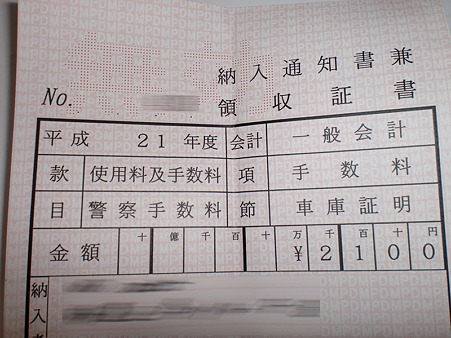 納入通知書兼
No. 領収証書
平成 21 年度 会計 一般会計
款 使用料及手数料 項 手数料
目 警察手数料 節 車庫証明
金額 十 億 千 百 十 万 千 百 十 円
¥ 2 1 0 0
納入者